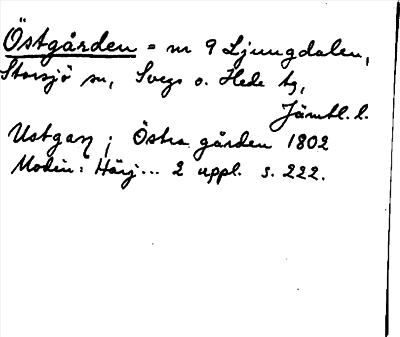 Östgården = nr 9 Ljungdalen,
Storsjö sn, Svegs o. Hede tg,
Jämtl. l.
Ustgaṉ ; Östra gården 1802
Modin: Härj... 2 uppl. s. 222.